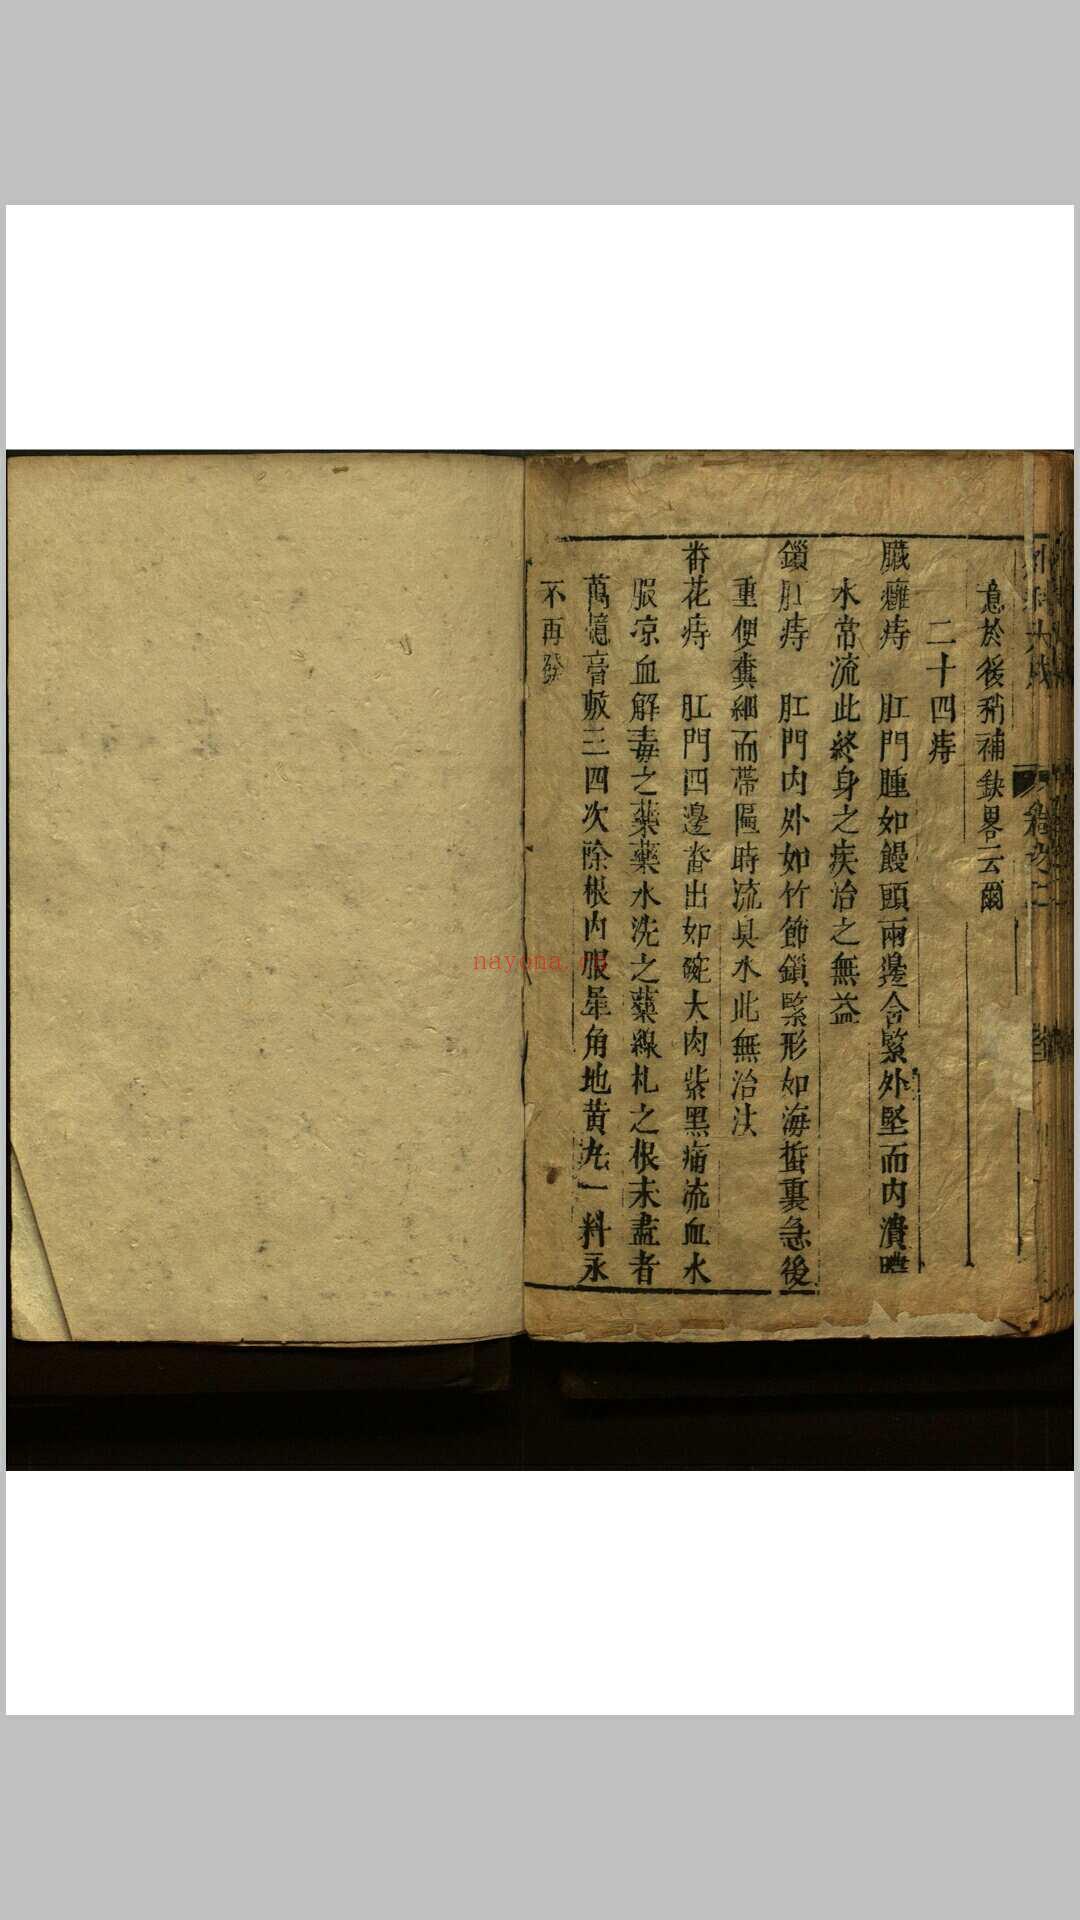 外科大成
意於後稍補缺畧云爾
二十四痔
臟癰痔 肛門腫如饅頭兩邊合緊外坚而內潰膿
水常流此終身之疾治之無益
鎖肛痔 肛門內外如竹節鎖緊形如海蜇裏急後
重便糞細而帶匾時流臭水此無治法
番花痔 肛門四邊畨出如碗大肉紫黑痛流血水
服凉血解毒之藥藥水洗之藥線札之根未盡者
萬憶膏敷三四次除根內服犀角地黄丸一料永
不再發
nayona.cn